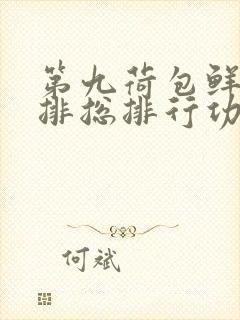 第九荷包鲜
排总排行功
何斌